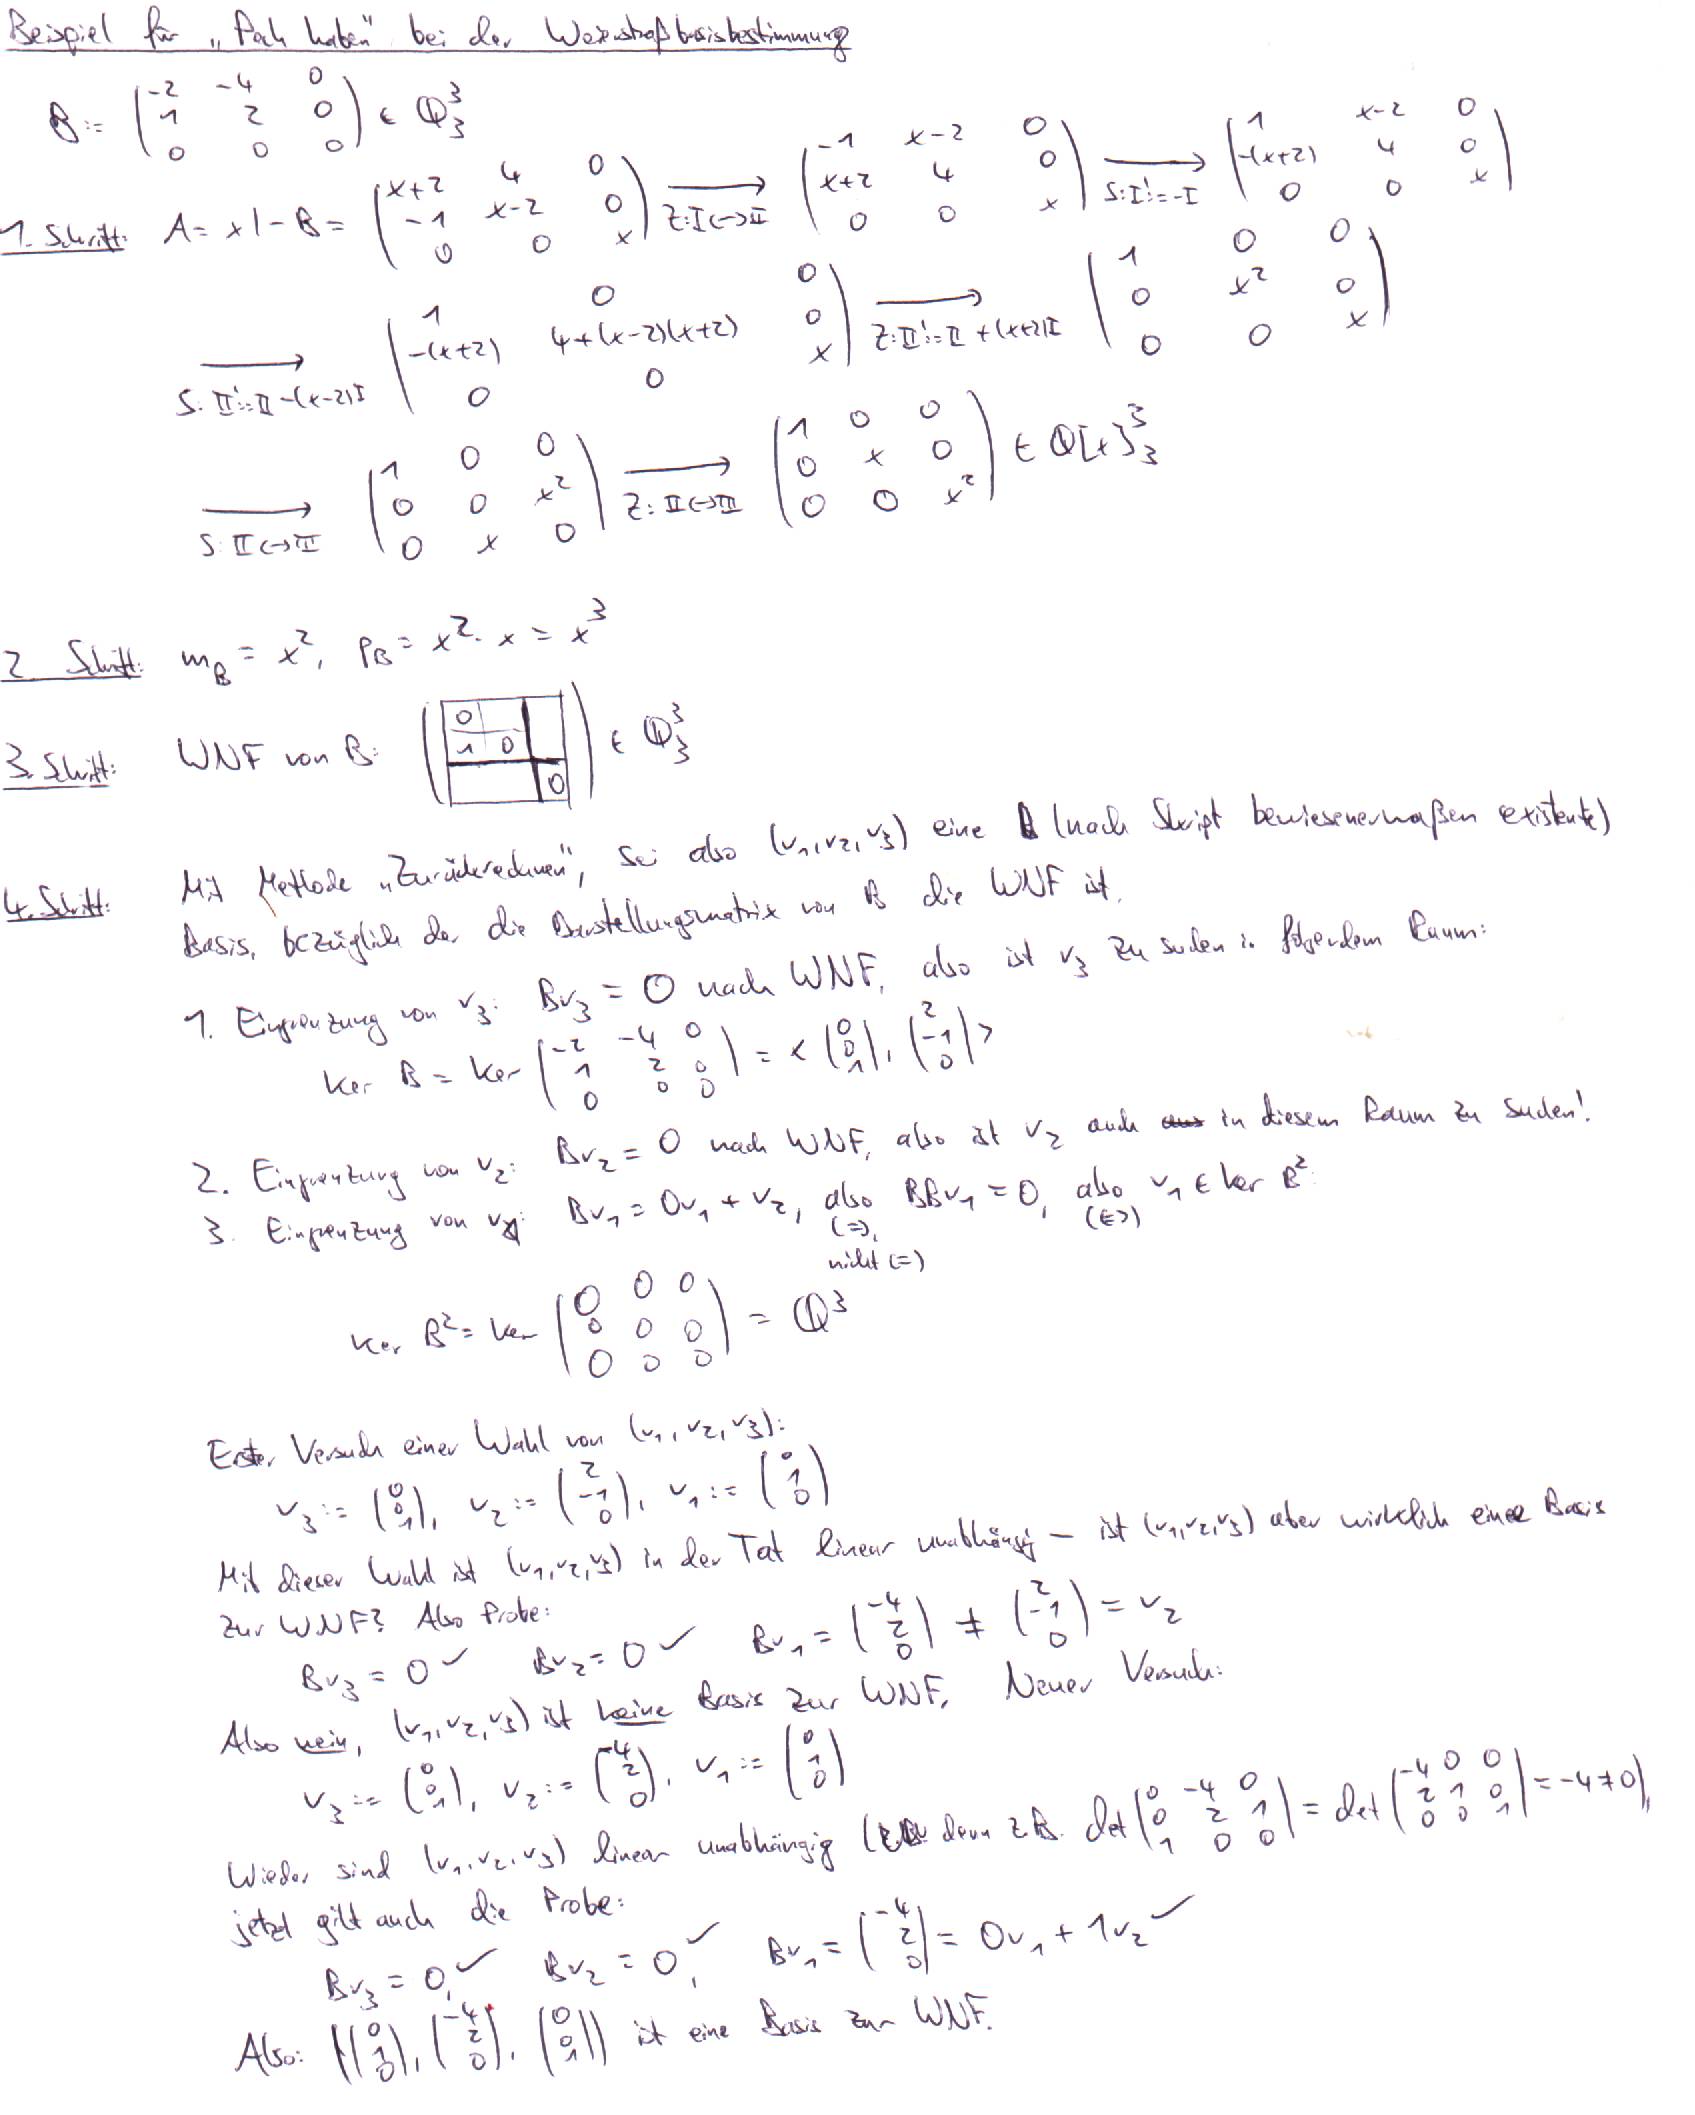 Beispiel für „Pech haben" bei der Weierstraßbasisbestimmung
B := (-2 -4 0 / 1 2 0 / 0 0 0) ∈ ℚ³₃
1. Schritt: A = xI - B = (x+2 4 0 / -1 x-2 0 / 0 0 x) →[Z: I↔II] (-1 x-2 0 / x+2 4 0 / 0 0 x) →[S: I' := -I] (1 x-2 0 / -(x+2) 4 0 / 0 0 x)
→[S: II' := II -(x-2)I] (1 0 0 / -(x+2) 4+(x-2)(x+2) 0 / 0 0 x) →[Z: II' := II +(x+2)I] (1 0 0 / 0 x² 0 / 0 0 x)
→[S: II↔III] (1 0 0 / 0 0 x² / 0 x 0) →[Z: II↔III] (1 0 0 / 0 x 0 / 0 0 x²) ∈ ℚ[x]³₃
2 Schritt: m_B = x², p_B = x² · x = x³
3. Schritt: WNF von B: (0 / 1 0 / 0) ∈ ℚ³₃
4. Schritt: Mit Methode „Zurückrechnen", sei also (v₁,v₂,v₃) eine (nach Skript bewiesenermaßen existente)
Basis, bezüglich der die Darstellungsmatrix von B die WNF ist.
1. Eingrenzung von v₃: Bv₃ = 0 nach WNF, also ist v₃ zu suchen in folgendem Raum:
ker B = ker (-2 -4 0 / 1 2 0 / 0 0 0) = < (0 / 0 / 1), (2 / -1 / 0) >
2. Eingrenzung von v₂: Bv₂ = 0 nach WNF, also ist v₂ auch in diesem Raum zu suchen!
3. Eingrenzung von v₁: Bv₁ = 0v₁ + v₂, also (⇒), nicht (⇐) BBv₁ = 0, also (⇔) v₁ ∈ ker B².
ker B² = ker (0 0 0 / 0 0 0 / 0 0 0) = ℚ³
Erster Versuch einer Wahl von (v₁,v₂,v₃):
v₃ := (0 / 0 / 1), v₂ := (2 / -1 / 0), v₁ := (0 / 1 / 0)
Mit dieser Wahl ist (v₁,v₂,v₃) in der Tat linear unabhängig – ist (v₁,v₂,v₃) aber wirklich eine Basis
zur WNF? Also Probe:
Bv₃ = 0 ✓ Bv₂ = 0 ✓ Bv₁ = (-4 / 2 / 0) ≠ (2 / -1 / 0) = v₂
Also nein, (v₁,v₂,v₃) ist keine Basis zur WNF. Neuer Versuch:
v₃ := (0 / 0 / 1), v₂ := (-4 / 2 / 0), v₁ := (0 / 1 / 0)
Wieder sind (v₁,v₂,v₃) linear unabhängig (denn z.B. det (0 -4 0 / 0 2 1 / 1 0 0) = det (-4 0 0 / 2 1 0 / 0 0 1) = -4 ≠ 0),
jetzt gilt auch die Probe:
Bv₃ = 0, ✓ Bv₂ = 0, ✓ Bv₁ = (-4 / 2 / 0) = 0v₁ + 1v₂ ✓
Also: ((0 / 1 / 0), (-4 / 2 / 0), (0 / 0 / 1)) ist eine Basis zur WNF.